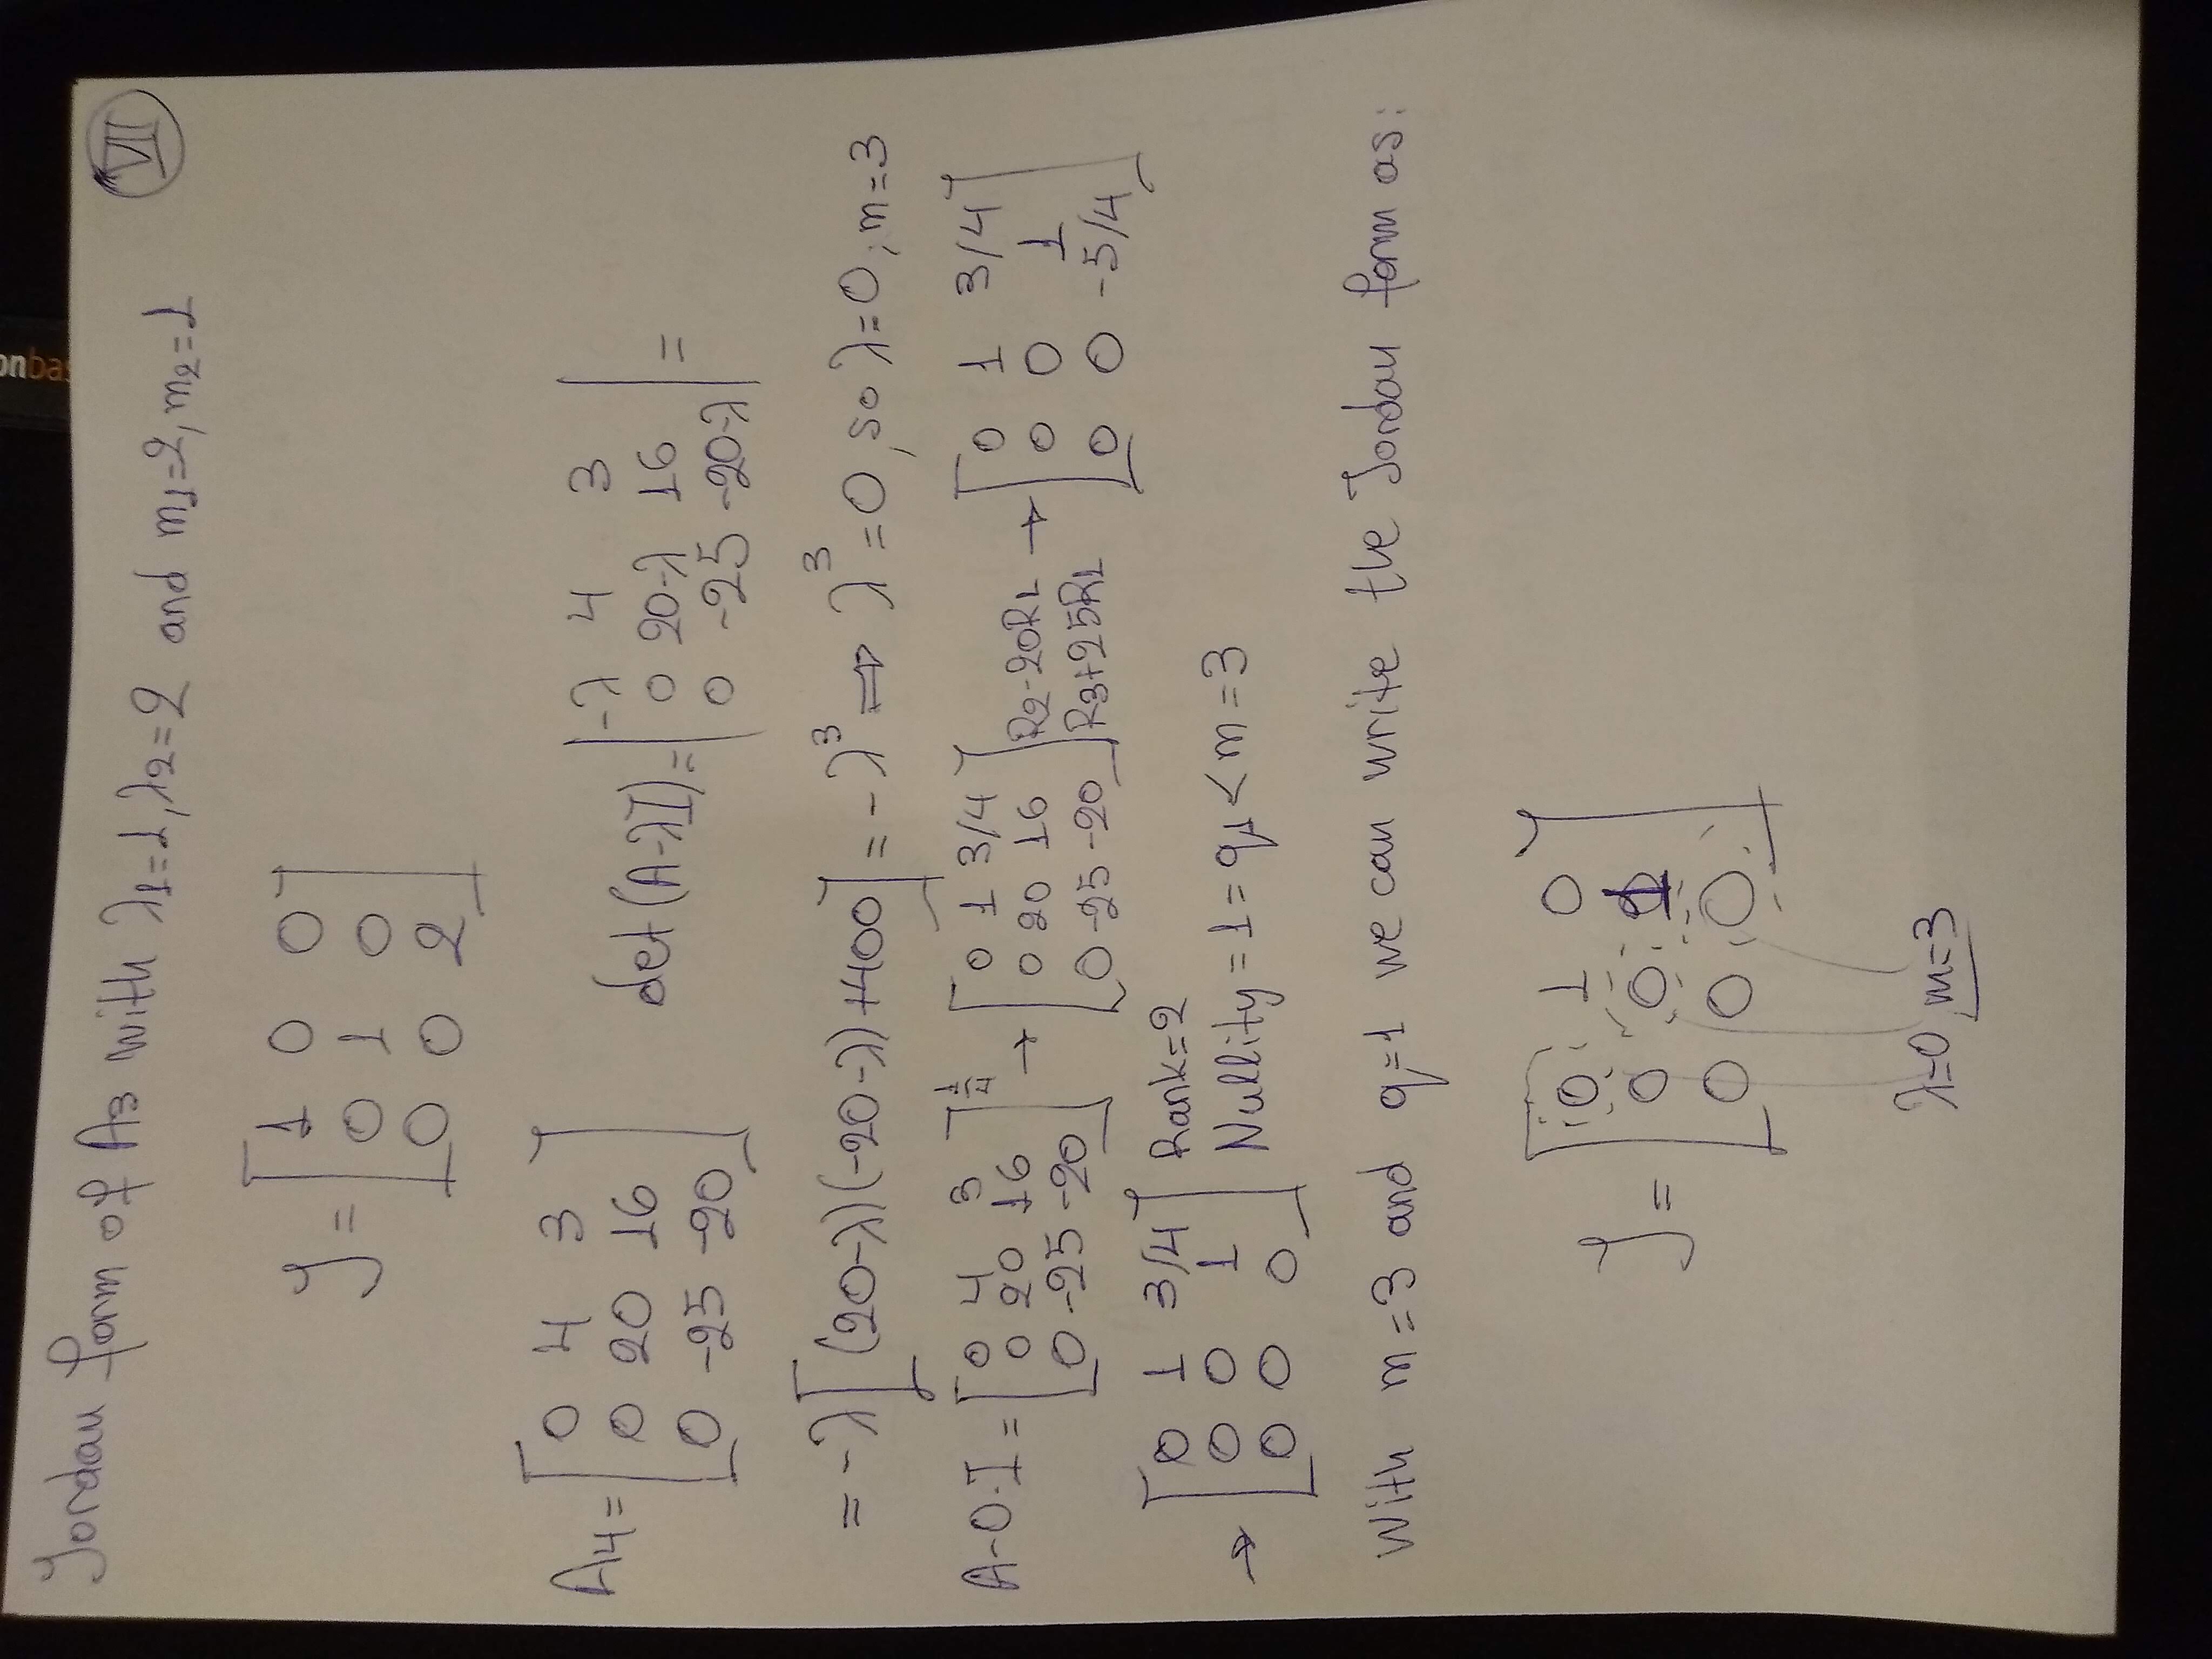 onba
Jordan form of A3 with λ1=1, λ2=2 and m1=2, m2=1
VII
J = [1 0 0
0 1 0
0 0 2]
A4 = [0 4 3
0 20 16
0 -25 -20]
det(A-λI) = |-λ 4 3
0 20-λ 16
0 -25 -20-λ| =
= -λ[(20-λ)(-20-λ)+400] = -λ³ ⇒ λ³=0, so λ=0; m=3
A-0·I = [0 4 3
0 20 16
0 -25 -20] 1/4 → [0 1 3/4
0 20 16
0 -25 -20] R2-20R1 R3+25R1 → [0 1 3/4
0 0 1
0 0 -5/4]
→ [0 1 3/4
0 0 1
0 0 0]
Rank=2
Nullity = 1 = q1 < m = 3
With m=3 and q=1 we can write the Jordan form as:
J = [0 1 0
0 0 1
0 0 0]
λ=0, m=3